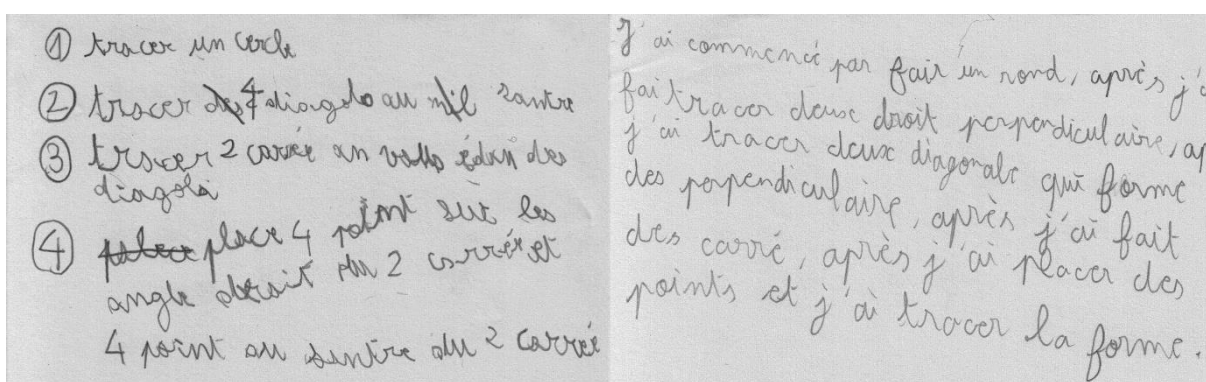 ① tracer un cercle
② tracer 4 diagolo au santre
③ tracer 2 carrée an des
diagola
④ place 4 point sur les
angle droit du 2 carrée et
4 point au sentre du 2 carrée
J'ai commencé par fair un rond, après j'
fai tracer deux droit perpendiculaire,
j'ai tracer deux diagonale qui forme
des perpendiculaire, après j'ai fait
des carré, après j'ai placer des
points et j'ai tracer la forme.